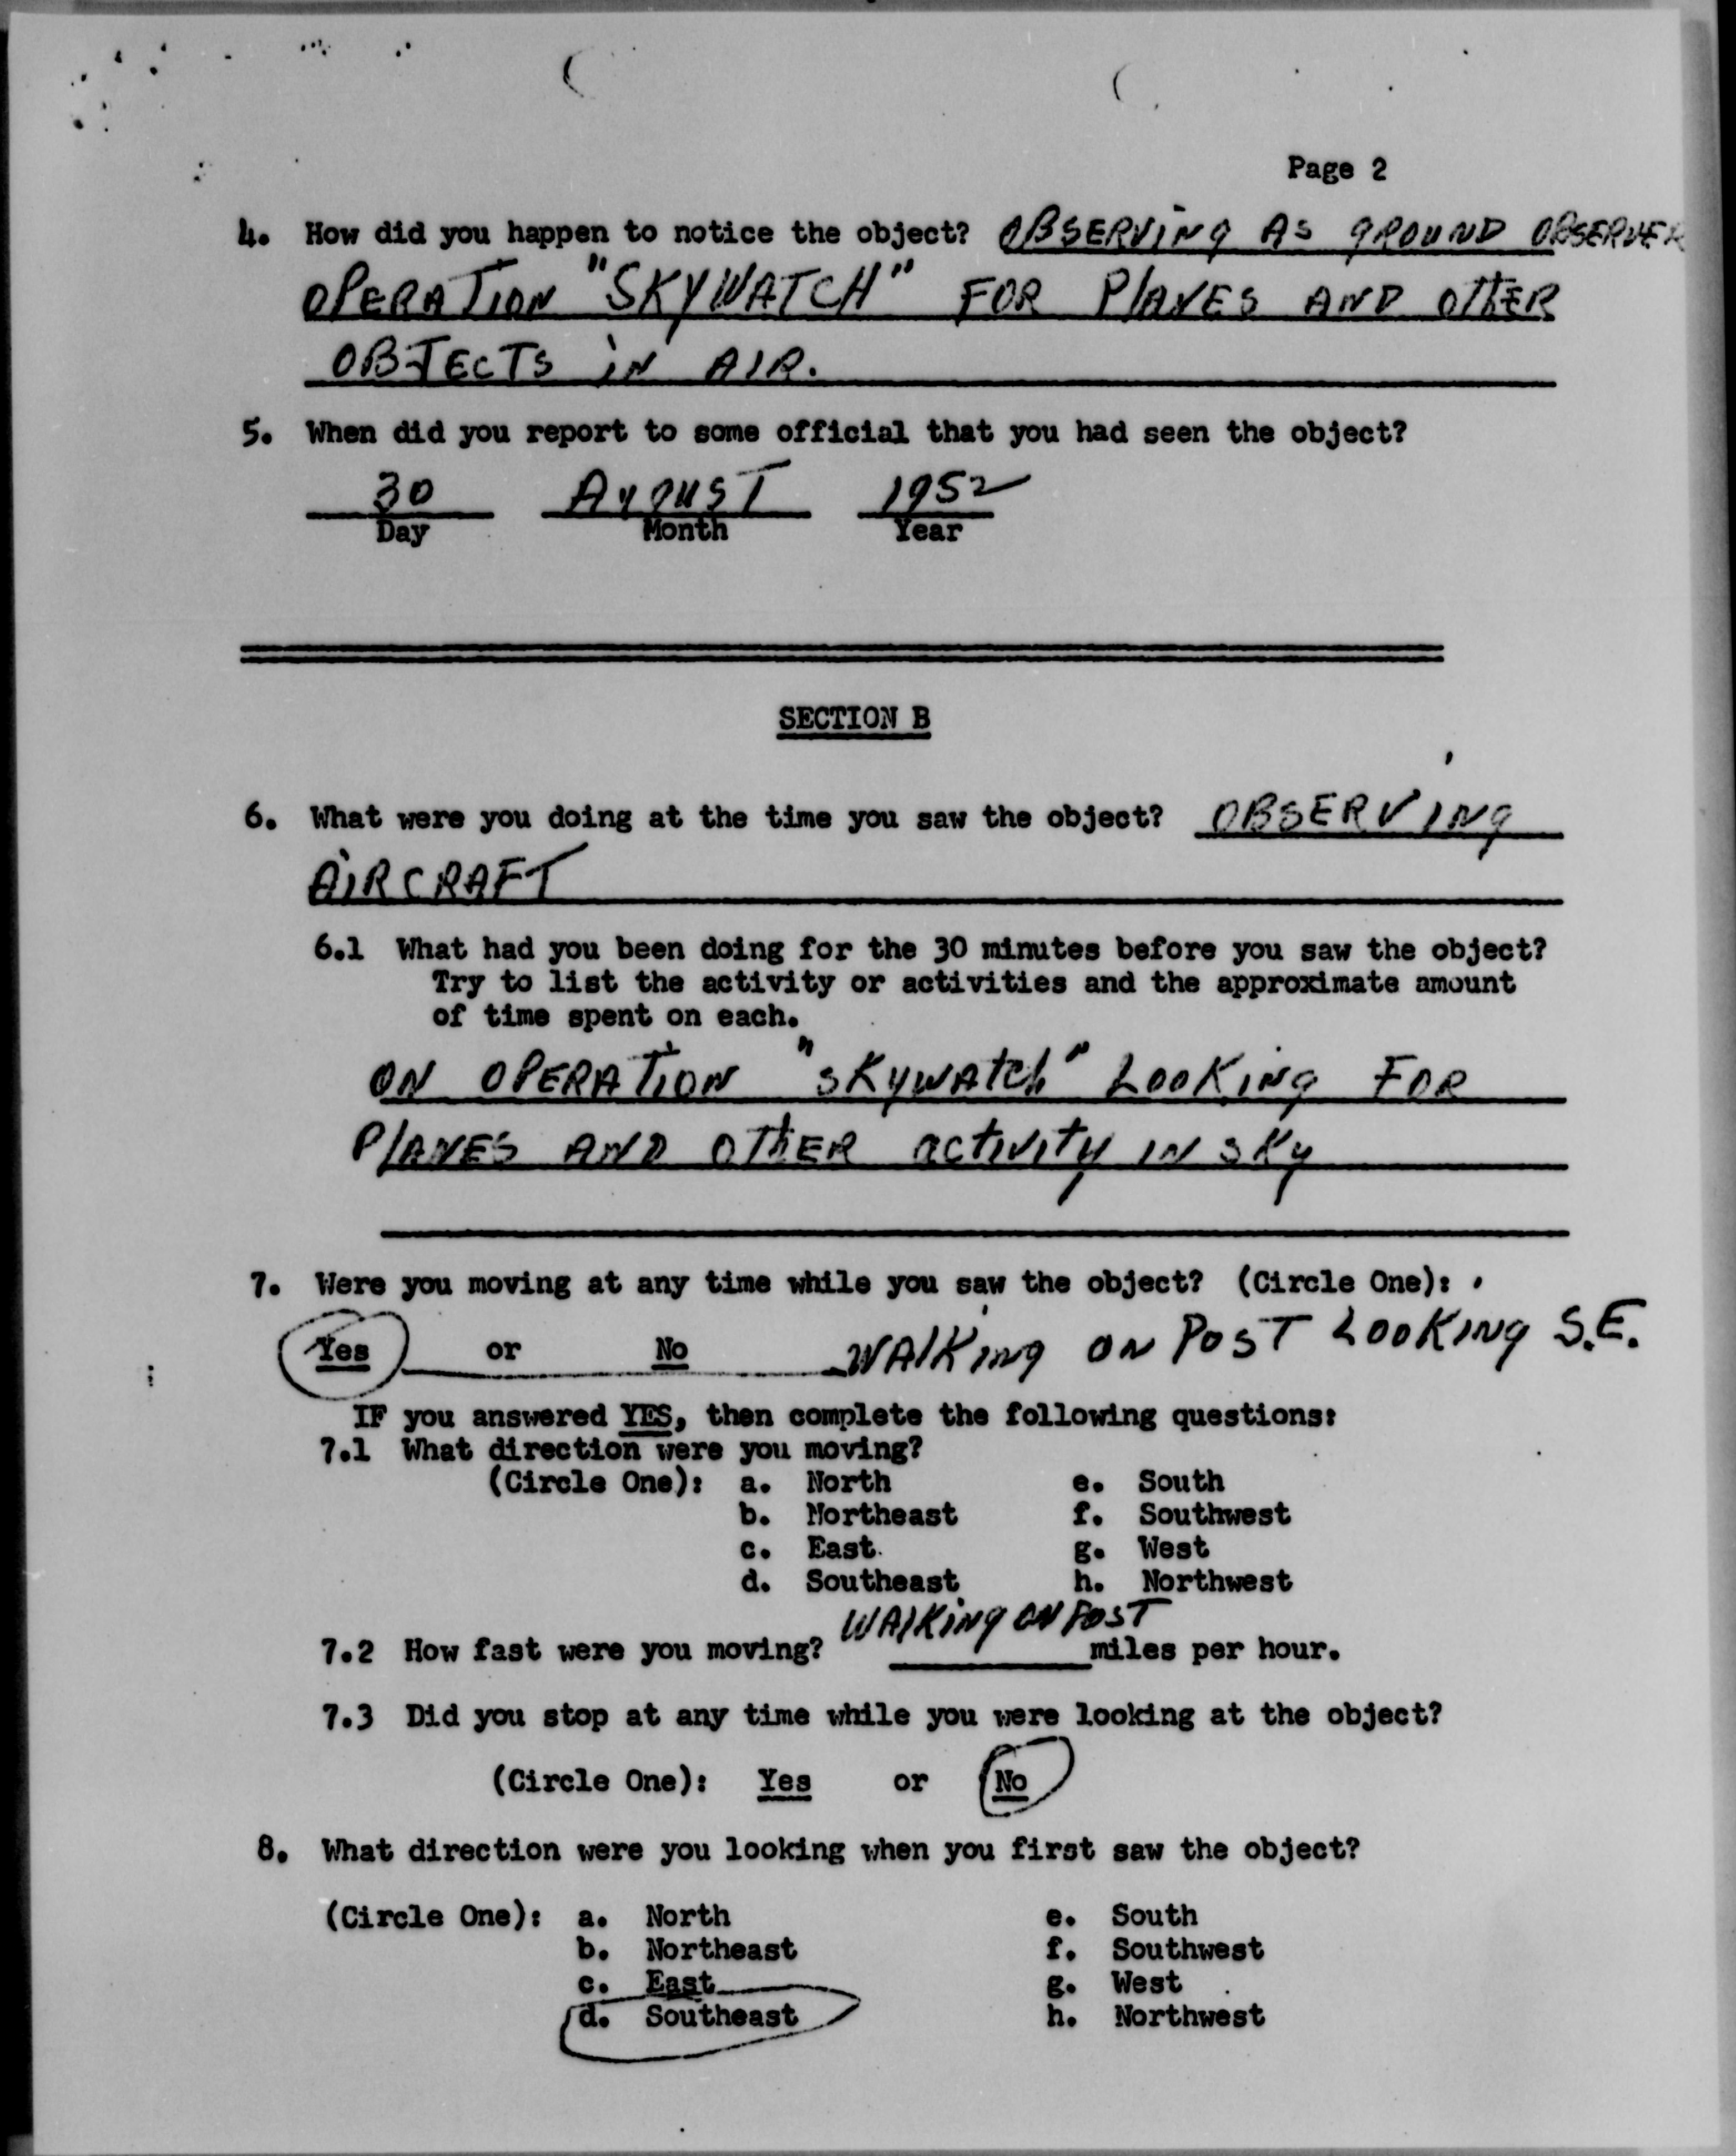 Page 2
4. How did you happen to notice the object? OBSERVING AS GROUND OBSERVER
OPERATION "SKYWATCH" FOR PLANES AND OTHER
OBJECTS IN AIR.
5. When did you report to some official that you had seen the object?
30 AUGUST 1952
Day Month Year
SECTION B
6. What were you doing at the time you saw the object? OBSERVING
AIRCRAFT
6.1 What had you been doing for the 30 minutes before you saw the object?
Try to list the activity or activities and the approximate amount
of time spent on each.
ON OPERATION "SKYWATCh" LOOKING FOR
PLANES AND OTHER activity IN SKY
7. Were you moving at any time while you saw the object? (Circle One):
Yes or No WALKING ON POST LOOKING S.E.
IF you answered YES, then complete the following questions:
7.1 What direction were you moving?
(Circle One): a. North e. South
b. Northeast f. Southwest
c. East g. West
d. Southeast h. Northwest
WALKING ON POST
7.2 How fast were you moving? miles per hour.
7.3 Did you stop at any time while you were looking at the object?
(Circle One): Yes or No
8. What direction were you looking when you first saw the object?
(Circle One): a. North e. South
b. Northeast f. Southwest
c. East g. West
d. Southeast h. Northwest